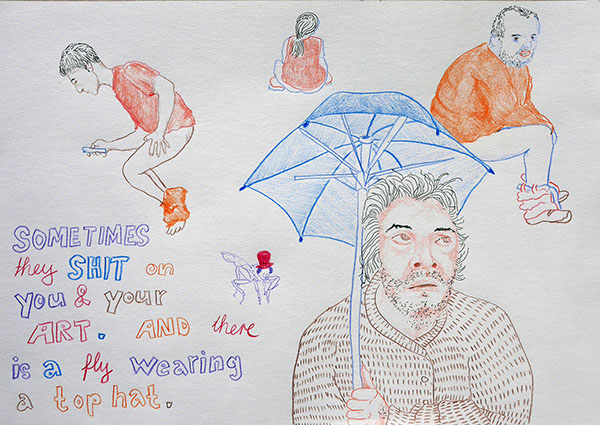 SOMETIMES
they SHIT on
you & your
ART. AND there
is a fly wearing
a top hat.